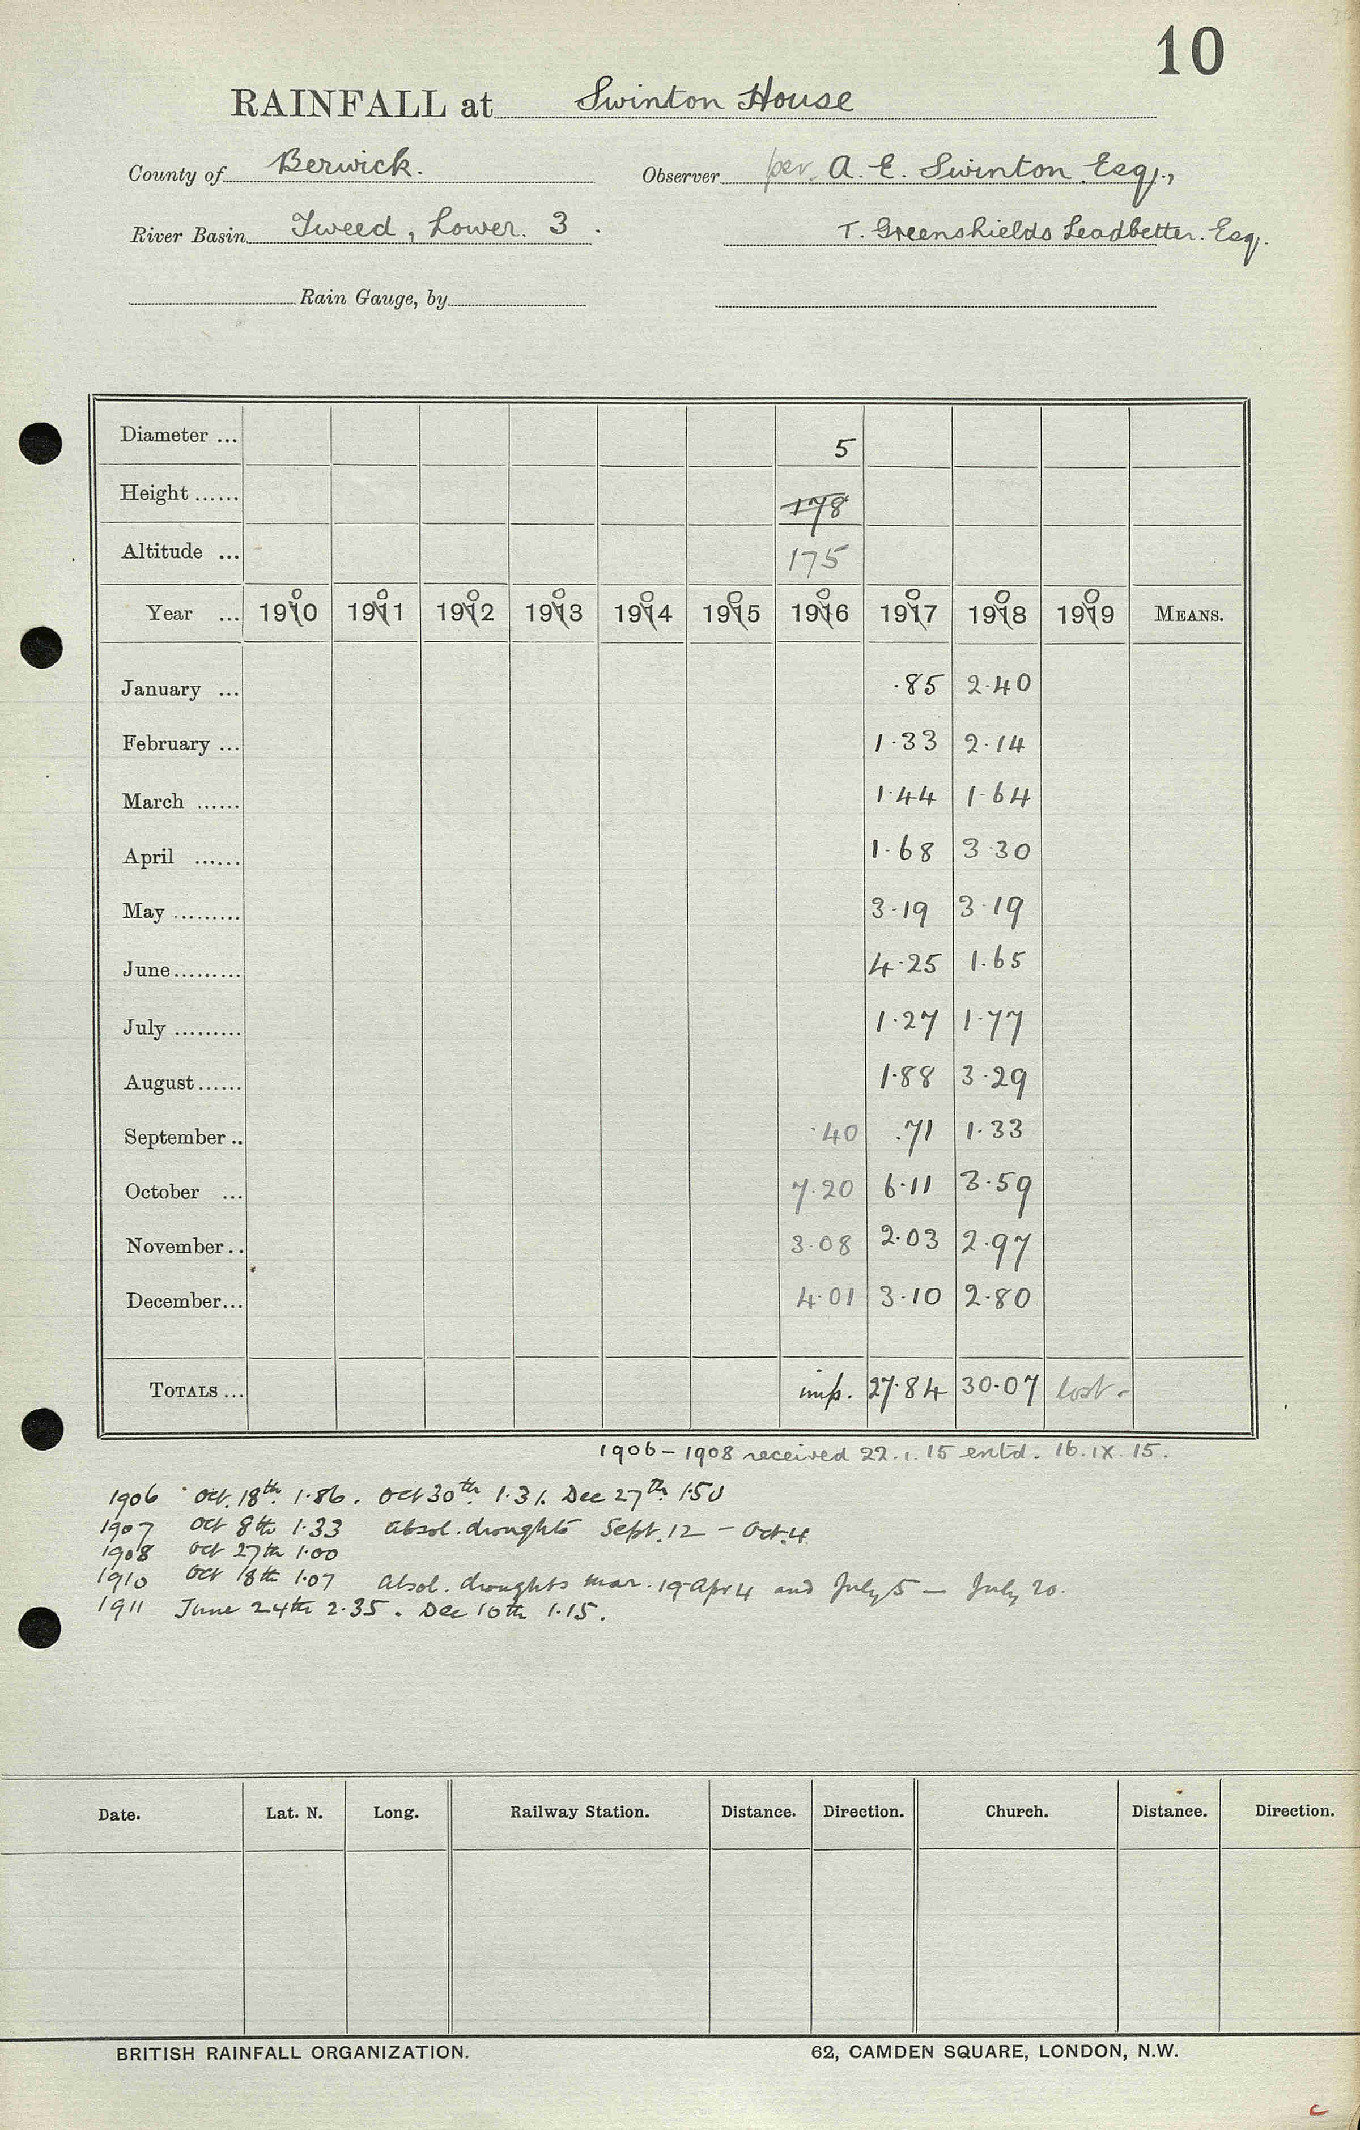 10
RAINFALL at Swinton House
County of Berwick. Observer per. A. E. Swinton Esq.,
River Basin Tweed, Lower. 3. T. Greenshields Leadbetter. Esq.
Rain Gauge, by
Diameter ... 5
Height ...... 178
Altitude ... 175
Year ... 1900 1901 1902 1903 1904 1905 1906 1907 1908 1909 MEANS.
January ... .85 2.40
February ... 1.33 2.14
March ...... 1.44 1.64
April ...... 1.68 3.30
May ......... 3.19 3.19
June ......... 4.25 1.65
July ......... 1.27 1.77
August ...... 1.88 3.29
September .. .40 .71 1.33
October ... 7.20 6.11 3.59
November .. 3.08 2.03 2.97
December ... 4.01 3.10 2.80
TOTALS ... imp. 27.84 30.07 lost.
1906 - 1908 received 22.1.15 entd. 16.IX.15.
1906 Oct. 18th 1.86. Oct 30th 1.31. Dec 27th 1.50
1907 Oct 8th 1.33 Absol. droughts Sept. 12 - Oct. 4
1908 Oct 27th 1.00
1910 Oct 18th 1.07 Absol. droughts Mar. 19-Apr 4 and July 5 - July 20.
1911 June 24th 2.35. Dec 10th 1.15.
Date. Lat. N. Long. Railway Station. Distance. Direction. Church. Distance. Direction.
BRITISH RAINFALL ORGANIZATION. 62, CAMDEN SQUARE, LONDON, N.W.
c